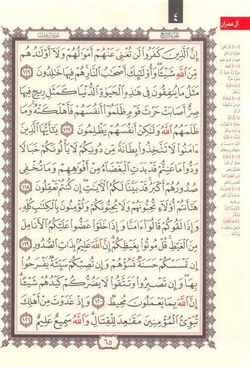 آل عمران
٤
إِنَّ ٱلَّذِينَ كَفَرُوا۟ لَن تُغْنِىَ عَنْهُمْ أَمْوَٰلُهُمْ وَلَآ أَوْلَـٰدُهُم
مِّنَ ٱللَّهِ شَيْـًٔا ۖ وَأُو۟لَـٰٓئِكَ أَصْحَـٰبُ ٱلنَّارِ ۚ هُمْ فِيهَا خَـٰلِدُونَ ١١٦
مَثَلُ مَا يُنفِقُونَ فِى هَـٰذِهِ ٱلْحَيَوٰةِ ٱلدُّنْيَا كَمَثَلِ رِيحٍ فِيهَا
صِرٌّ أَصَابَتْ حَرْثَ قَوْمٍ ظَلَمُوٓا۟ أَنفُسَهُمْ فَأَهْلَكَتْهُ ۚ وَمَا
ظَلَمَهُمُ ٱللَّهُ وَلَـٰكِنْ أَنفُسَهُمْ يَظْلِمُونَ ١١٧ يَـٰٓأَيُّهَا ٱلَّذِينَ
ءَامَنُوا۟ لَا تَتَّخِذُوا۟ بِطَانَةً مِّن دُونِكُمْ لَا يَأْلُونَكُمْ خَبَالًا
وَدُّوا۟ مَا عَنِتُّمْ قَدْ بَدَتِ ٱلْبَغْضَآءُ مِنْ أَفْوَٰهِهِمْ وَمَا تُخْفِى
صُدُورُهُمْ أَكْبَرُ ۚ قَدْ بَيَّنَّا لَكُمُ ٱلْـَٔايَـٰتِ ۖ إِن كُنتُمْ تَعْقِلُونَ ١١٨
هَـٰٓأَنتُمْ أُو۟لَآءِ تُحِبُّونَهُمْ وَلَا يُحِبُّونَكُمْ وَتُؤْمِنُونَ بِٱلْكِتَـٰبِ كُلِّهِۦ
وَإِذَا لَقُوكُمْ قَالُوٓا۟ ءَامَنَّا وَإِذَا خَلَوْا۟ عَضُّوا۟ عَلَيْكُمُ ٱلْأَنَامِلَ
مِنَ ٱلْغَيْظِ ۚ قُلْ مُوتُوا۟ بِغَيْظِكُمْ ۗ إِنَّ ٱللَّهَ عَلِيمٌۢ بِذَاتِ ٱلصُّدُورِ ١١٩
إِن تَمْسَسْكُمْ حَسَنَةٌ تَسُؤْهُمْ وَإِن تُصِبْكُمْ سَيِّئَةٌ يَفْرَحُوا۟
بِهَا ۖ وَإِن تَصْبِرُوا۟ وَتَتَّقُوا۟ لَا يَضُرُّكُمْ كَيْدُهُمْ شَيْـًٔا ۗ
إِنَّ ٱللَّهَ بِمَا يَعْمَلُونَ مُحِيطٌ ١٢٠ وَإِذْ غَدَوْتَ مِنْ أَهْلِكَ
تُبَوِّئُ ٱلْمُؤْمِنِينَ مَقَـٰعِدَ لِلْقِتَالِ ۗ وَٱللَّهُ سَمِيعٌ عَلِيمٌ ١٢١
٦٥